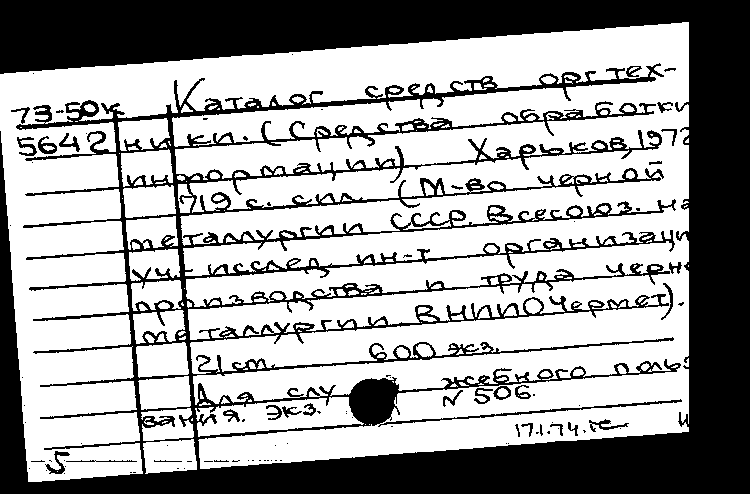 73-50к Каталог средств оргтех-
5642 ники. (Средства обработки
информации). Харьков, 1972
719 с. с ил. (М-во черной
металлургии СССР. Всесоюз. на
уч-исслед. ин-т организаци
производства и труда черн
металлургии ВНИИОЧермет).
21 см. 600 экз.
Для служебного польз
вания. Экз. N 506.
17.1.74.
5